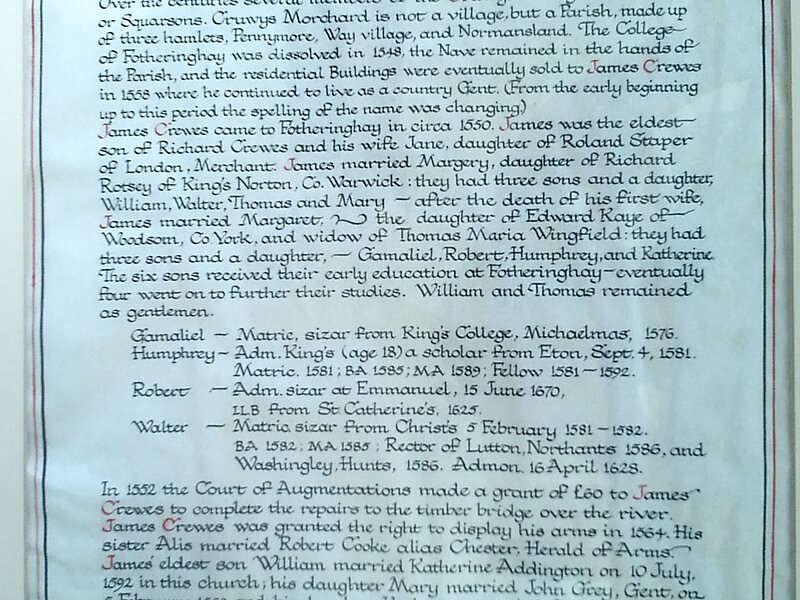 Over the centuries several members of the
or Squarsons. Cruwys Morchard is not a village, but a Parish, made up
of three hamlets, Pennymore, Way village, and Normansland. The College
of Fotheringhay was dissolved in 1548, the Nave remained in the hands of
the Parish, and the residential Buildings were eventually sold to James Crewes
in 1558 where he continued to live as a country Gent. (From the early beginning
up to this period the spelling of the name was changing.)
James Crewes came to Fotheringhay in circa 1550. James was the eldest
son of Richard Crewes and his wife Jane, daughter of Roland Staper
of London, Merchant. James married Margery, daughter of Richard
Rotsey of King's Norton, Co. Warwick : they had three sons and a daughter,
William, Walter, Thomas and Mary — after the death of his first wife,
James married Margaret, ~ the daughter of Edward Kaye of
Woodsom, Co York, and widow of Thomas Maria Wingfield : they had
three sons and a daughter, — Gamaliel, Robert, Humphrey, and Katherine.
The six sons received their early education at Fotheringhay — eventually
four went on to further their studies. William and Thomas remained
as gentlemen.
Gamaliel — Matric, sizar from King's College, Michaelmas, 1576.
Humphrey — Adm. King's (age 18) a scholar from Eton, Sept. 4, 1581.
Matric. 1581; BA 1585; MA 1589; Fellow 1581 — 1592.
Robert — Adm. sizar at Emmanuel, 15 June 1670,
LLB from St. Catherine's, 1625.
Walter — Matric. sizar from Christ's 5 February 1581 — 1582.
BA 1582; MA 1585 ; Rector of Lutton, Northants 1586, and
Washingley, Hunts, 1586. Admon. 16 April 1628.
In 1552 the Court of Augmentations made a grant of £60 to James
Crewes to complete the repairs to the timber bridge over the river.
James Crewes was granted the right to display his arms in 1564. His
sister Alis married Robert Cooke alias Chester, Herald of Arms.
James' eldest son William married Katherine Addington on 10 July,
1592 in this church; his daughter Mary married John Grey, Gent, on